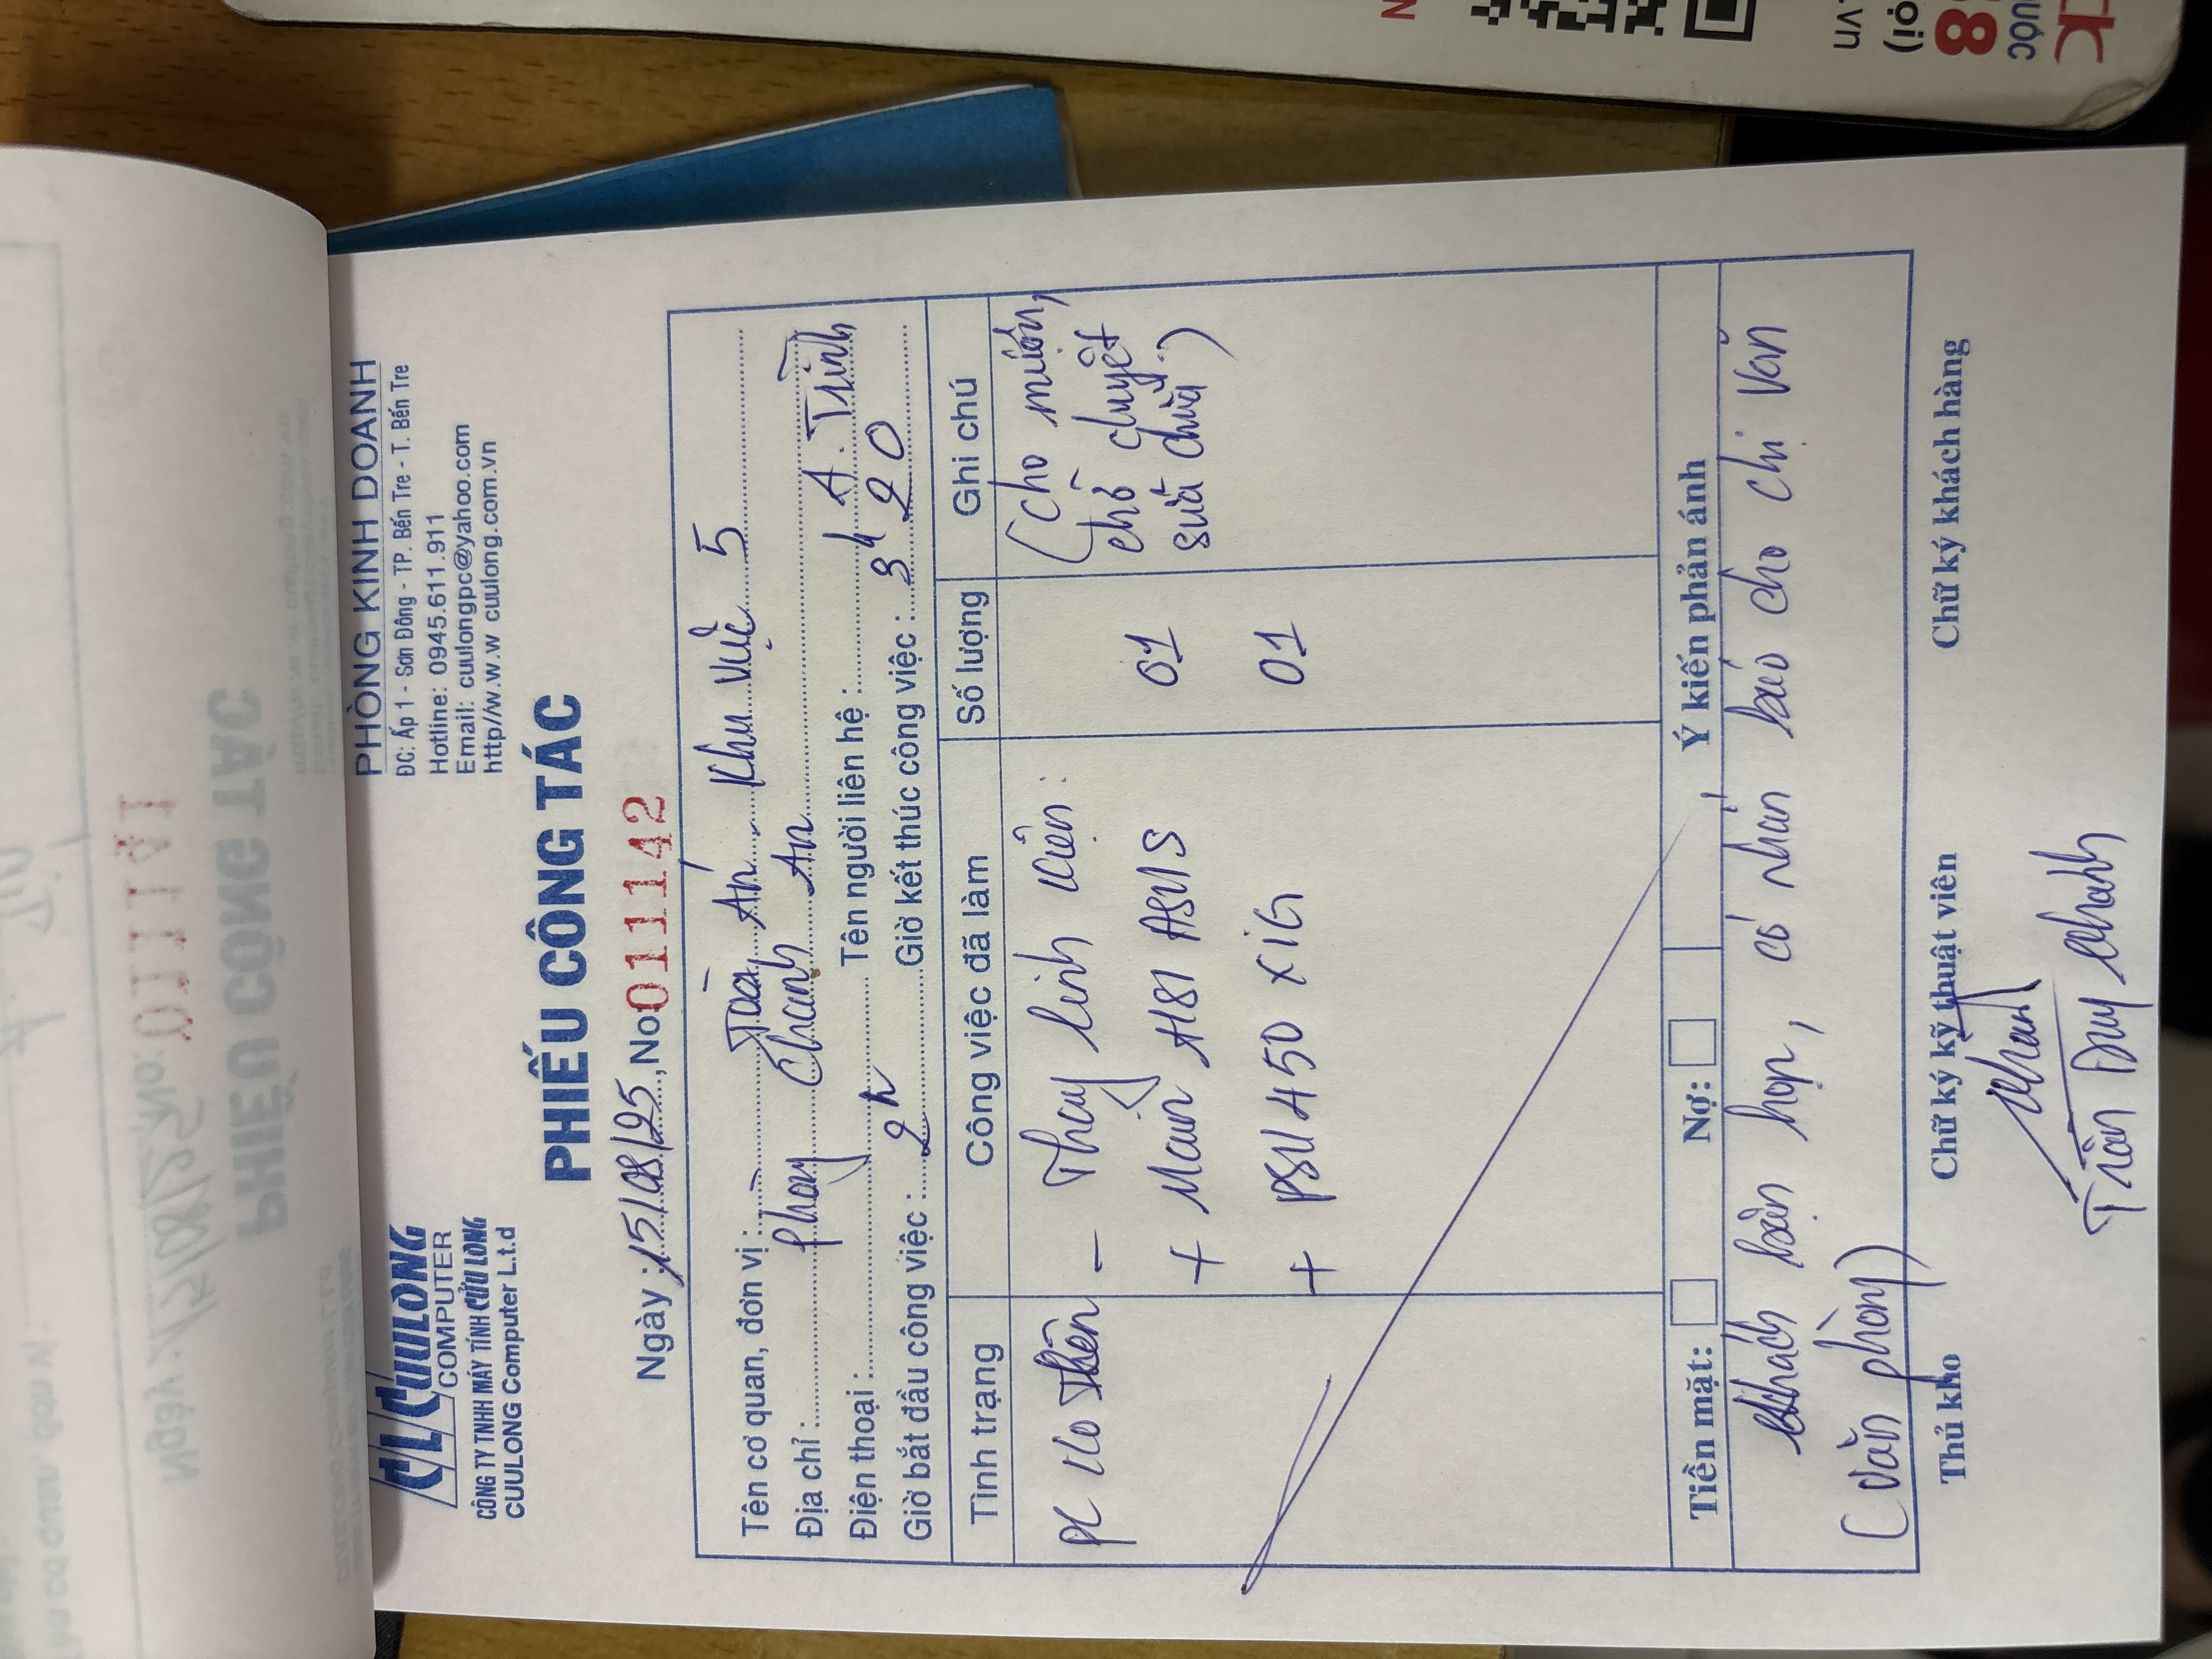 CL CUULONG
COMPUTER
CÔNG TY TNHH MÁY TÍNH CỬU LONG
CUULONG Computer L.t.d
PHÒNG KINH DOANH
ĐC: Ấp 1 - Sơn Đông - TP. Bến Tre - T. Bến Tre
Hotline: 0945.611.911
Email: cuulongpc@yahoo.com
http//w.w.w cuulong.com.vn
PHIẾU CÔNG TÁC
Ngày: 15/08/25, No: 011142
Tên cơ quan, đơn vị: Toà Án Khu vực 5
Địa chỉ: Phong Chanh An
Điện thoại: Tên người liên hệ: A. Trình
Giờ bắt đầu công việc: 2h Giờ kết thúc công việc: 3h 20
Tình trạng Công việc đã làm Số lượng Ghi chú
PC - Thay linh kiện: (cho mượn,
+ Main H81 ASUS 01 chờ duyệt
sửa chữa)
+ PSU 450 XIG 01
Tiền mặt: Nợ: Ý kiến phản ánh
khách bận họp, có nhắn báo cho chị Vân
(văn phòng)
Thủ kho Chữ ký kỹ thuật viên Chữ ký khách hàng
Khanh
Trần Duy Khanh
011141
PHIẾU CÔNG TÁC